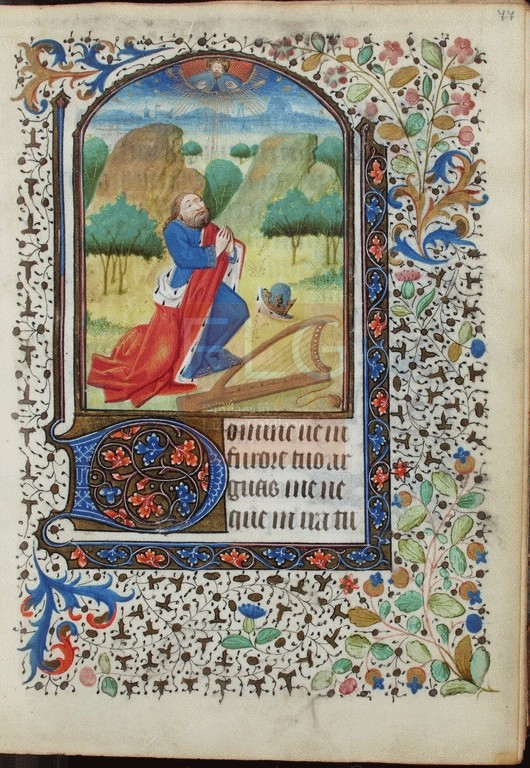 Domine ne in
furore tuo ar
guas me ne
que in ira tu